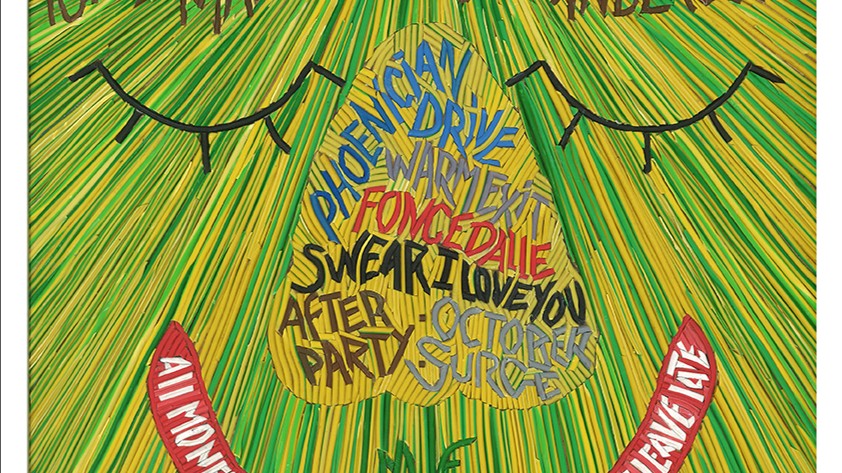 PHOENICIAN
DRIVE
WARM EXIT
FONCEDALLE
SWEAR I LOVE YOU
AFTER
PARTY
· OCTOBER
SURGE
All MONE
LEAVE lATE